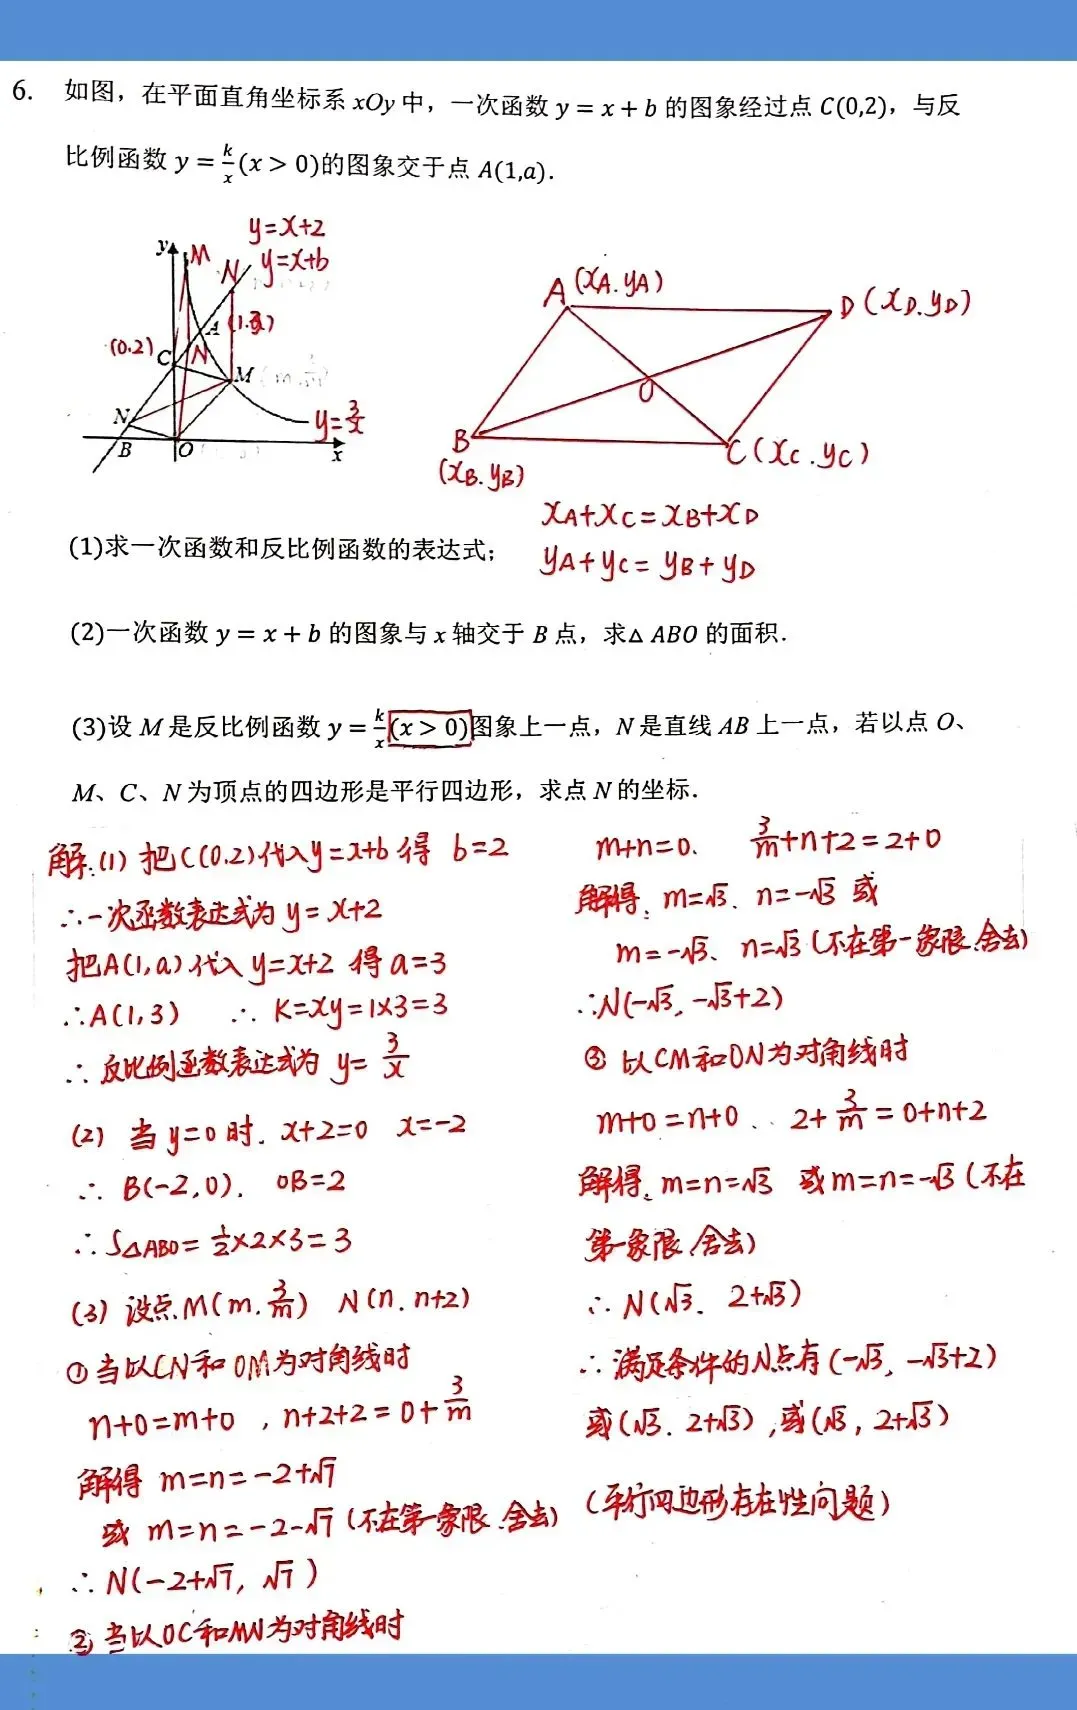 6. 如图，在平面直角坐标系 xOy 中，一次函数 y = x + b 的图象经过点 C(0,2)，与反
比例函数 y = k/x (x > 0)的图象交于点 A(1,a).
y=x+2
y=x+b
y
M
N
A
(1.3)
(0.2)
C
N
M
N
B
O
x
y=3/x
A (xA.yA)
D (xD.yD)
O
B
(xB.yB)
C (xC.yC)
xA+xC=xB+xD
yA+yC=yB+yD
(1)求一次函数和反比例函数的表达式；
(2)一次函数 y = x + b 的图象与 x 轴交于 B 点，求△ ABO 的面积.
(3)设 M 是反比例函数 y = k/x (x > 0)图象上一点，N 是直线 AB 上一点，若以点 O、
M、C、N 为顶点的四边形是平行四边形，求点 N 的坐标.
解:(1) 把C(0.2)代入y=x+b 得 b=2
∴一次函数表达式为 y=x+2
把A(1,a)代入 y=x+2 得 a=3
∴A(1,3) ∴ K=xy=1×3=3
∴ 反比例函数表达式为 y=3/x
(2) 当 y=0 时. x+2=0 x=-2
∴ B(-2,0). OB=2
∴S△ABO=1/2×2×3=3
(3) 设点M(m.3/m) N(n.n+2)
① 当以CN和OM为对角线时
n+0=m+0 , n+2+2=0+3/m
解得 m=n=-2+√7
或 m=n=-2-√7 (不在第一象限.舍去)
∴ N(-2+√7, √7)
② 当以OC和MN为对角线时
m+n=0. 3/m+n+2=2+0
解得. m=√3. n=-√3 或
m=-√3、n=√3 (不在第一象限.舍去)
∴N(-√3,-√3+2)
③ 以CM和ON为对角线时
m+0=n+0 . . 2+3/m=0+n+2
解得. m=n=√3 或m=n=-√3 (不在
第一象限.舍去)
∴ N(√3. 2+√3)
∴ 满足条件的N点有(-√3, -√3+2)
或(√3. 2+√3) ,或(√3, 2+√3)
(平行四边形存在性问题)